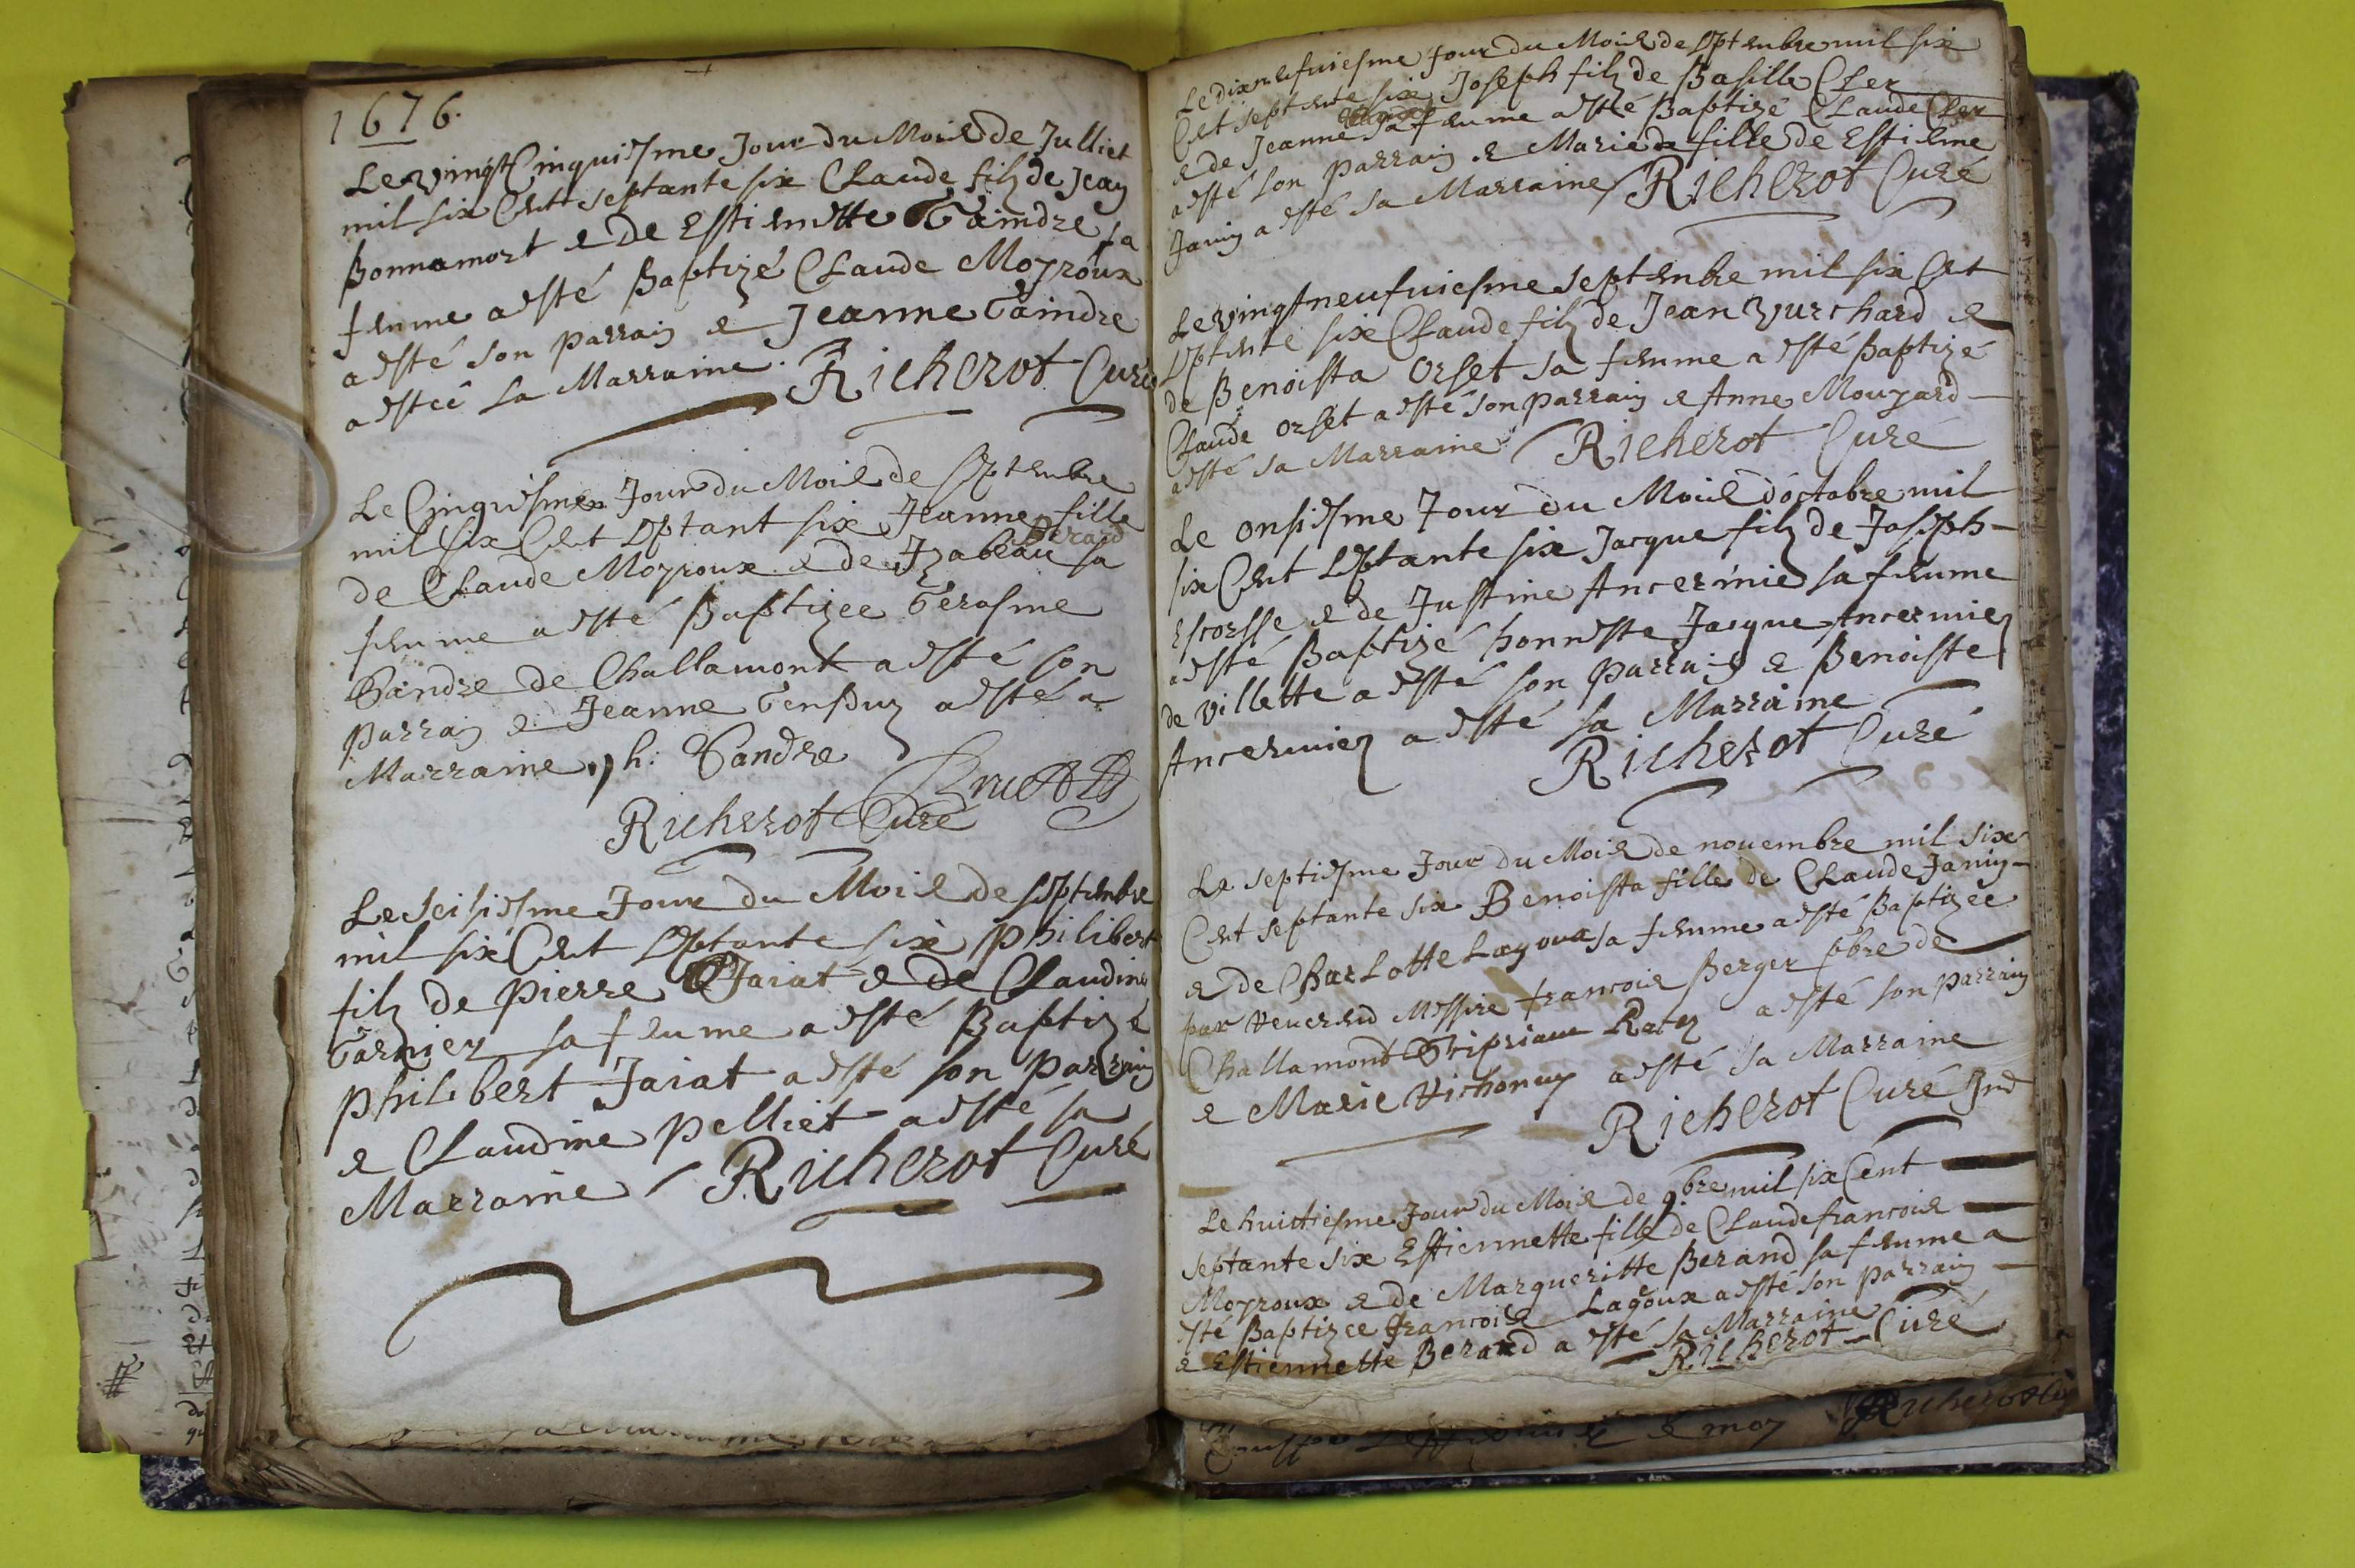 1676.
Le vingt Cinquiesme Jour du Mois de Julliet
mil six Cent septante six Claude filz de Jean
Bonnamort & De Estiennette Taindre sa
femme a esté Baptizé Claude Moyroux
a esté son parrain & Jeanne Taindre
a esteé sa Marraine. Richerot Curé
Le Cinquiesme Jour du Mois de septembre
mil six Cent septant six Jeanne fille
de Claude Moyroux & de Izabeau Beraud sa
femme a esté Baptizee Terasme
Tandre de Challamont a esté son
parrain & Jeanne a esté a
Marraine, h: Tandre
Richerot Curé
Le seisiesme Jour du Mois de septembre
mil six Cent septante six philibert
filz de pierre Jaiat & de Claudine
Tarnier sa femme a esté Baptizé
philibert Jaiat a esté son parrain
& Claudine pelliet a esté sa
Marraine Richerot Curé
Le dixneufviesme Jour du Mois de septembre mil six
Cent septente six Joseph filz de Basille Cler
& de Jeanne sa femme a esté Baptizé Claude Cler
a esté son parrain & Marie fille de Estienne
Janin a esté sa Marraine Richerot Curé
Le vingtneufviesme septembre mil six Cent
septente six Claude filz de Jean Vurchard &
de Benoista Orset sa femme a esté Baptizé
Claude Orset a esté son parrain & Anne Mouyard
a esté sa Marraine Richerot Curé
Le onsiesme Jour du Mois d'octobre mil
six Cent septante six Jacque filz de Joseph
Escorsse & de Justine Ancermier sa femme
a esté Baptizé honneste Jacque Ancermier
de villette a esté son parrain & Benoiste
Ancermier a esté sa Marraine
Richerot Curé
Le septiesme Jour du Mois de novembre mil six
Cent septante six Benoista fille de Claude Janin
& de Charlotte Lagoux sa femme a esté Baptizée
par Reverend Messire francois Berger pbre de
Challamont a esté son parrain
& Marie a esté sa Marraine
Richerot Curé
Le huictiesme Jour du Mois de 9bre mil six Cent
septante six Estiennette fille de Claude francois
Moyroux & de Margueritte Berand sa femme a
esté Baptizee francois Lagoux a esté son parrain
& Estiennette Berard a esté sa Marraine
Richerot Curé